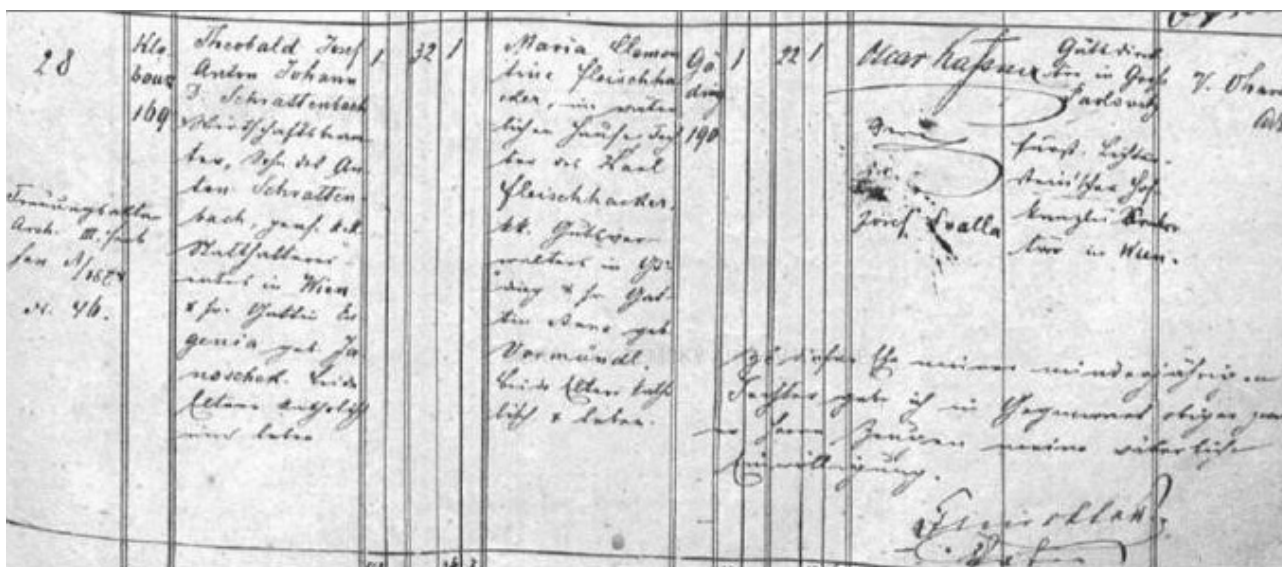 28
Trauungsakte
Arch. III. Fach
N. 46.
Klo-
bouk
169
Theobald Josef
Anton Johann
D. Schrattenbach
Wirtschaftsbeam-
ter, Sohn des An-
ton Schratten-
bach, pens. k.k.
Statthalterei-
rates in Wien
& sr. Gattin Eu-
genia geb. Ja-
noschek. Beide
Eltern katholisch
und leben
1
32
1
Maria Clemen-
tine Fleischha-
cker, im väter-
lichen Hause, Toch-
ter des Karl
Fleischhacker,
kk. Gutsver-
walters in Gö-
ding & sr. Gat-
tin Anna geb.
Vormündl.
Beide Eltern katho-
lisch & leben.
Gö-
ding
190
1
22
1
Oscar
in Groß
Karlovitz
Josef
fürst. Liechten-
stein'scher Hof-
kanzlei
in Wien.
Zu dieser Ehe meiner minderjährigen
Tochter gebe ich in Gegenwart obiger zwei-
er Herrn Zeugen meine väterliche
Einwilligung.